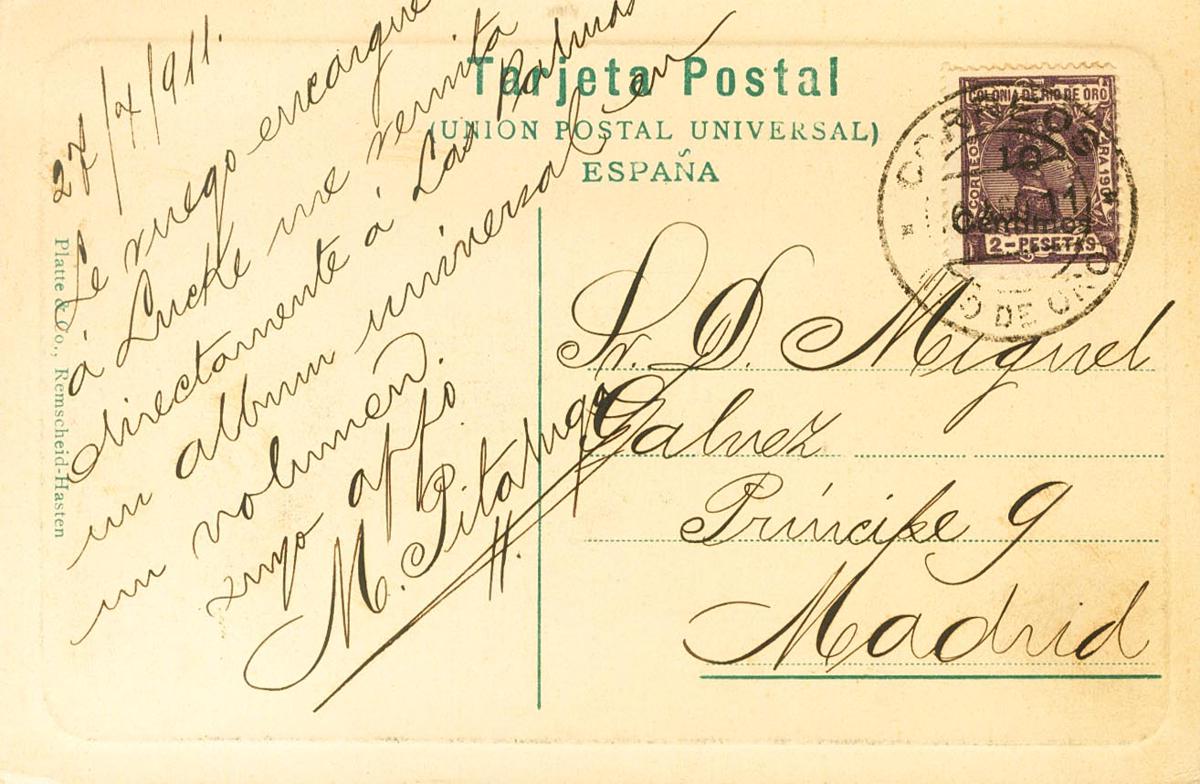 Tarjeta Postal
(UNION POSTAL UNIVERSAL)
ESPAÑA
Platte & Co., Remscheid-Hasten
27/7/911.
Le ruego encargue
á Lucke me remita
directamente á Las Palmas
un album universal en
un volumen.
suyo affo.
M. Pitaluga
COLONIA DE RIO DE ORO
CORREOS
PARA 1907
10
Céntimos
2-PESETAS
CORREOS
11
RIO DE ORO
Sr. D. Miguel
Galvez
Príncipe 9
Madrid